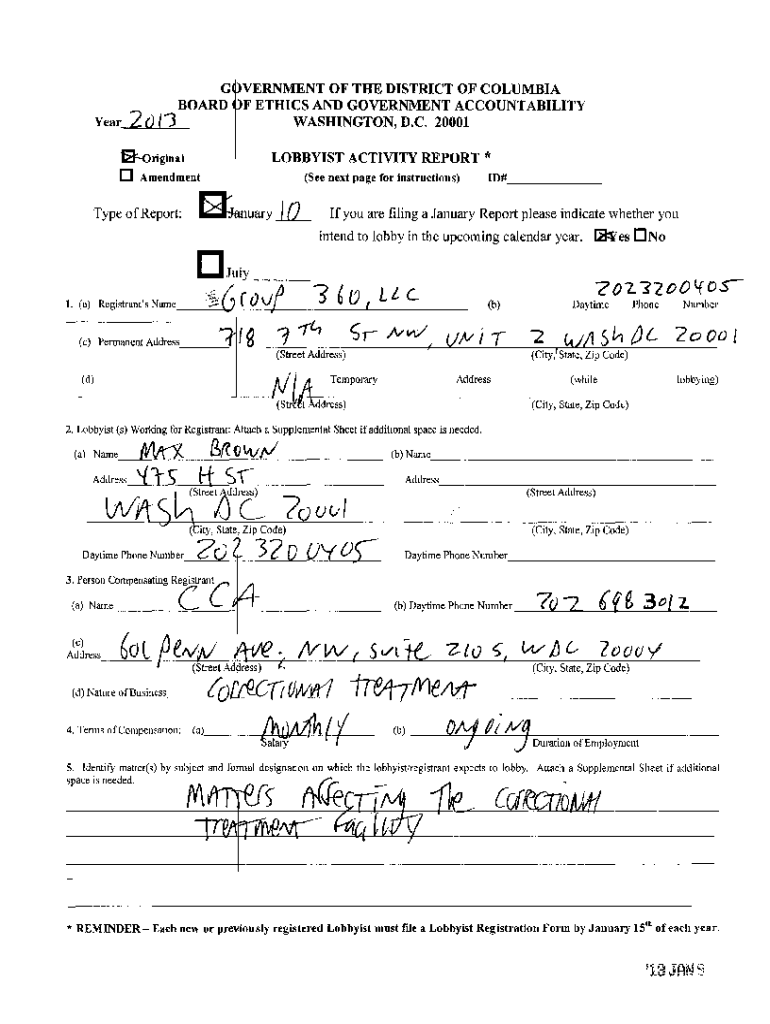 GOVERNMENT OF THE DISTRICT OF COLUMBIA
BOARD OF ETHICS AND GOVERNMENT ACCOUNTABILITY
Year 2013 WASHINGTON, D.C. 20001
☒ Original LOBBYIST ACTIVITY REPORT *
☐ Amendment (See next page for instructions) ID#
Type of Report: ☒ January 10 If you are filing a January Report please indicate whether you
intend to lobby in the upcoming calendar year. ☒Yes ☐No
☐ July
1. (a) Registrant's Name Group 360, LLC (b) 2023200405 Daytime Phone Number
(c) Permanent Address 718 7TH ST NW, UNIT 2 WASH DC 20001
(Street Address) (City, State, Zip Code)
(d) N/A Temporary Address (while lobbying)
(Street Address) (City, State, Zip Code)
2. Lobbyist (s) Working for Registrant: Attach a Supplemental Sheet if additional space is needed.
(a) Name MAX BROWN (b) Name
Address 475 H ST Address
(Street Address) (Street Address)
WASh DC 20001
(City, State, Zip Code) (City, State, Zip Code)
Daytime Phone Number 202 320 0405 Daytime Phone Number
3. Person Compensating Registrant
(a) Name CCA (b) Daytime Phone Number 702 698 3012
(c)
Address 601 PeNN Ave., NW, Suite 2105, WDC 20004
(Street Address) (City, State, Zip Code)
(d) Nature of Business CORRECTIONAL TREATMENT
4. Terms of Compensation: (a) Monthly (b) ONGOING
Salary Duration of Employment
5. Identify matter(s) by subject and formal designation on which the lobbyist/registrant expects to lobby. Attach a Supplemental Sheet if additional
space is needed.
MATTERS AFFECTING The CORRECTIONAL
TREATMENT FACILITY
* REMINDER – Each new or previously registered Lobbyist must file a Lobbyist Registration Form by January 15th of each year.
'13 JAN 9